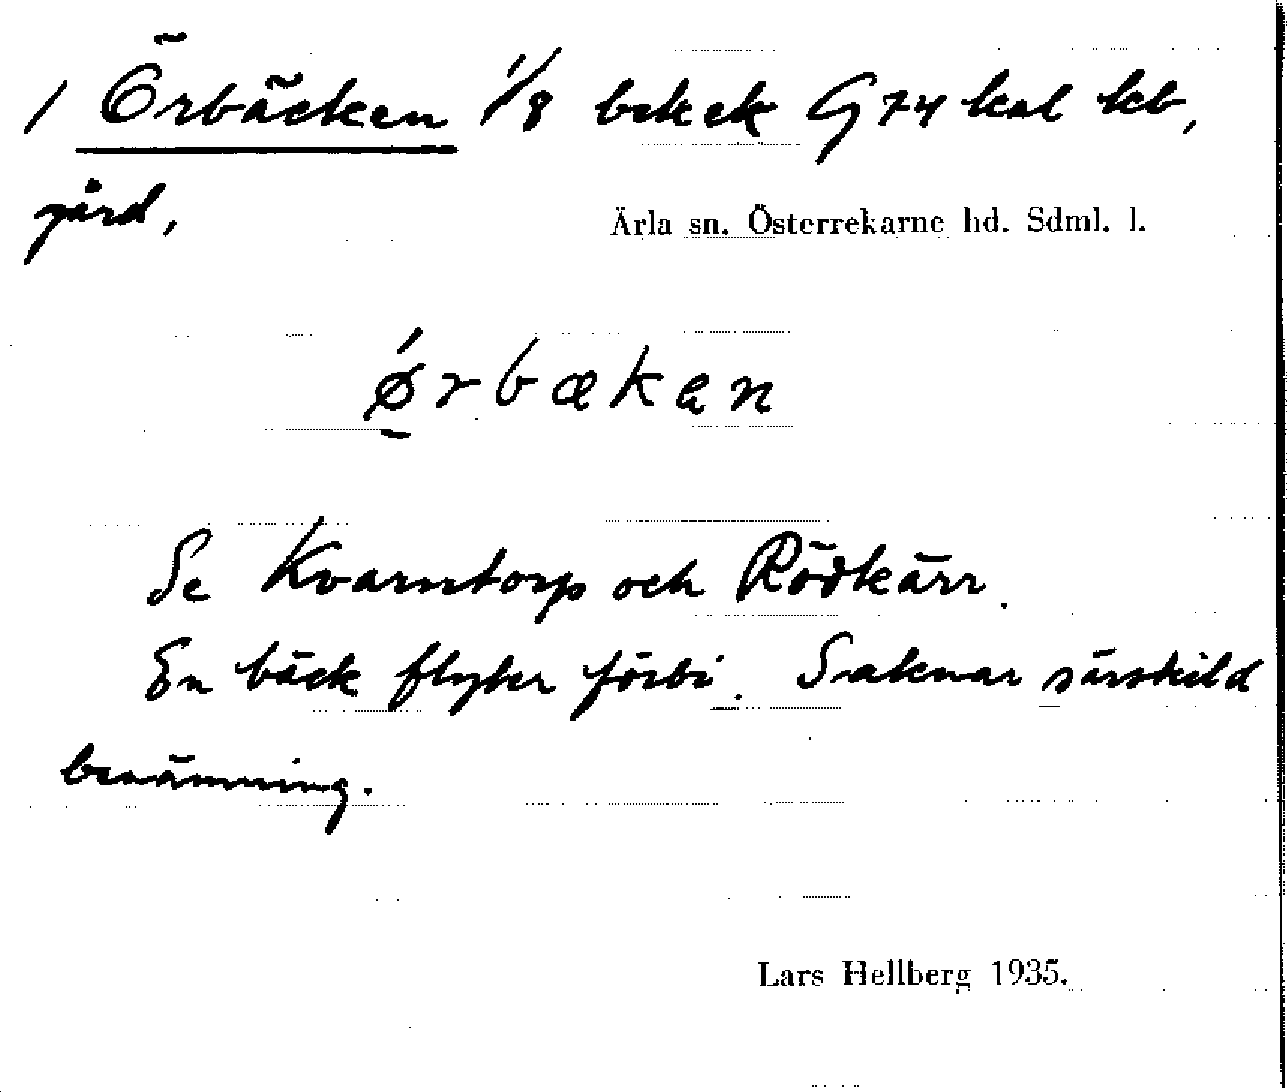 / Örbäcken 1/8 bekek G 74 kal kb,
gård,
Ärla sn. Österrekarne hd. Sdml. l.
ǿrbækan
Se Kvarntorp och Rödkärr.
En bäck flyter förbi. Saknar särskild
benämning.
Lars Hellberg 1935.